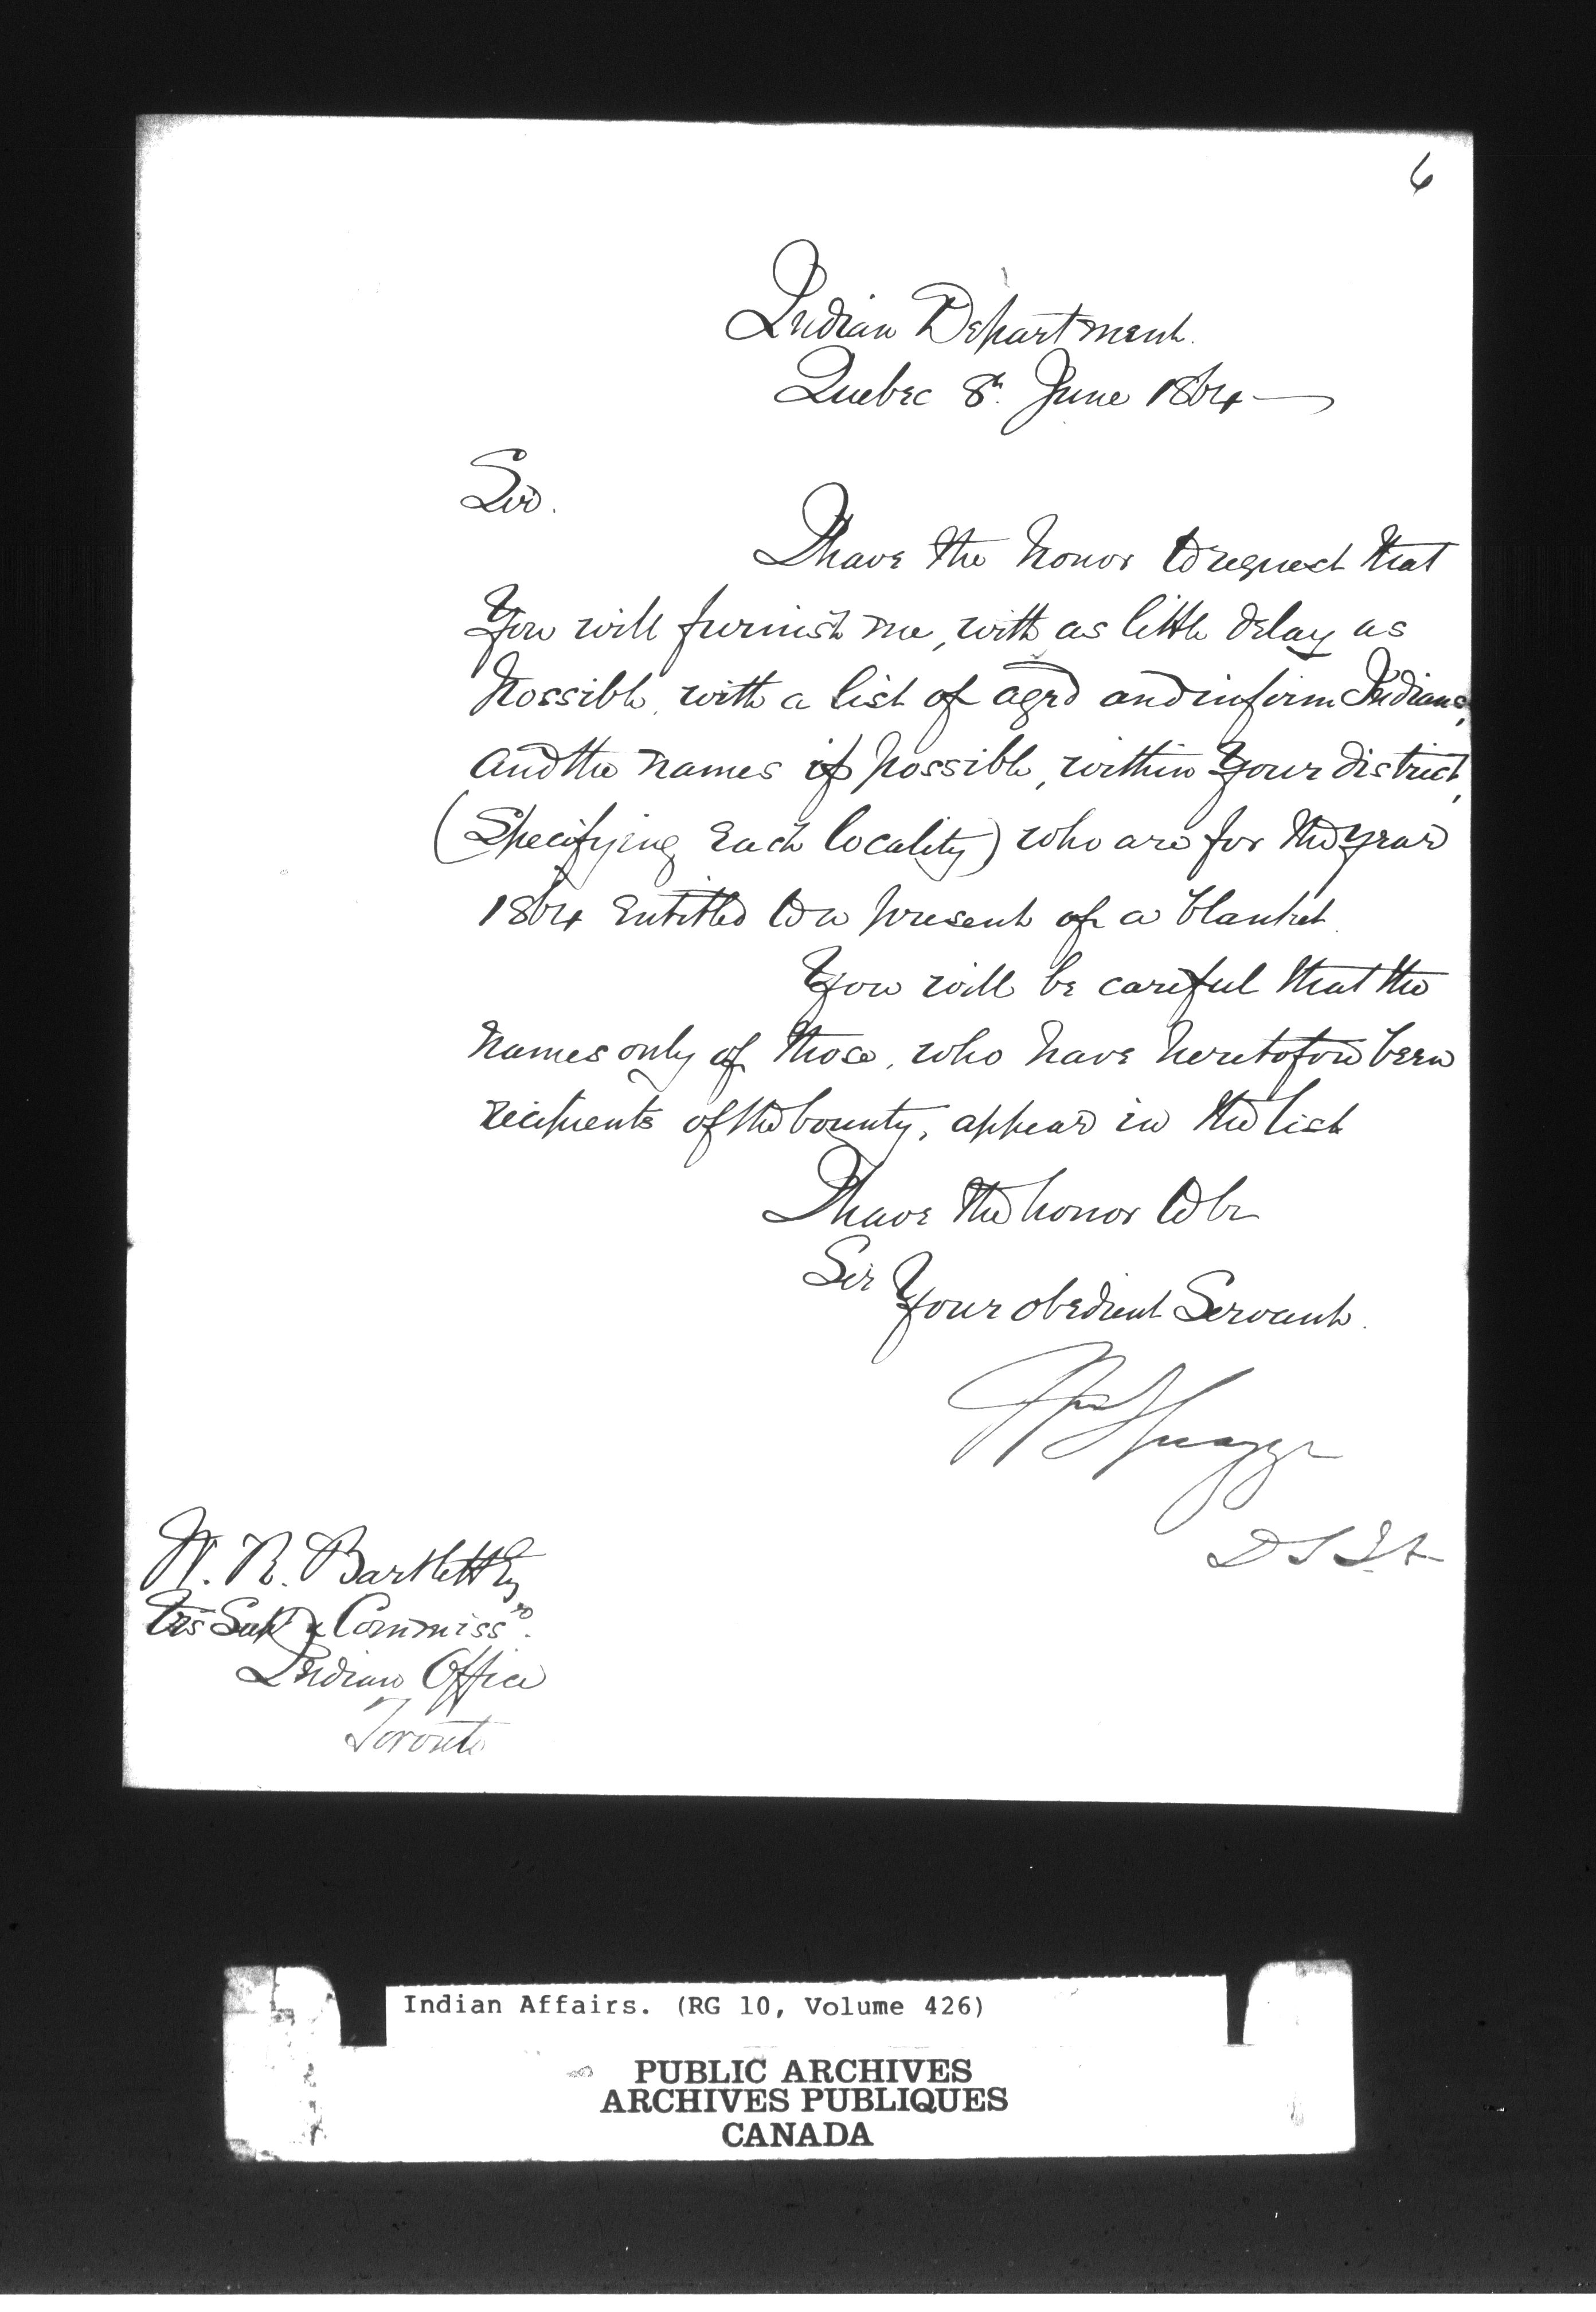 6
Indian Department.
Quebec 8th June 1864
Sir.
I have the honor to request that
you will furnish me, with as little delay as
possible, with a list of aged and infirm Indians,
and the names if possible, within your district,
(Specifying each locality) who are for the year
1864 entitled to a present of a blanket.
You will be careful that the
names only of those, who have heretofore been
recipients of the bounty, appear in the list
I have the honor to be
Sir
Your obedient Servant.
Wm Spragge
D S I A
W. R. Bartlett Esq
Vis Supt & Commissr.
Indian Office
Toronto
Indian Affairs. (RG 10, Volume 426)
PUBLIC ARCHIVES
ARCHIVES PUBLIQUES
CANADA